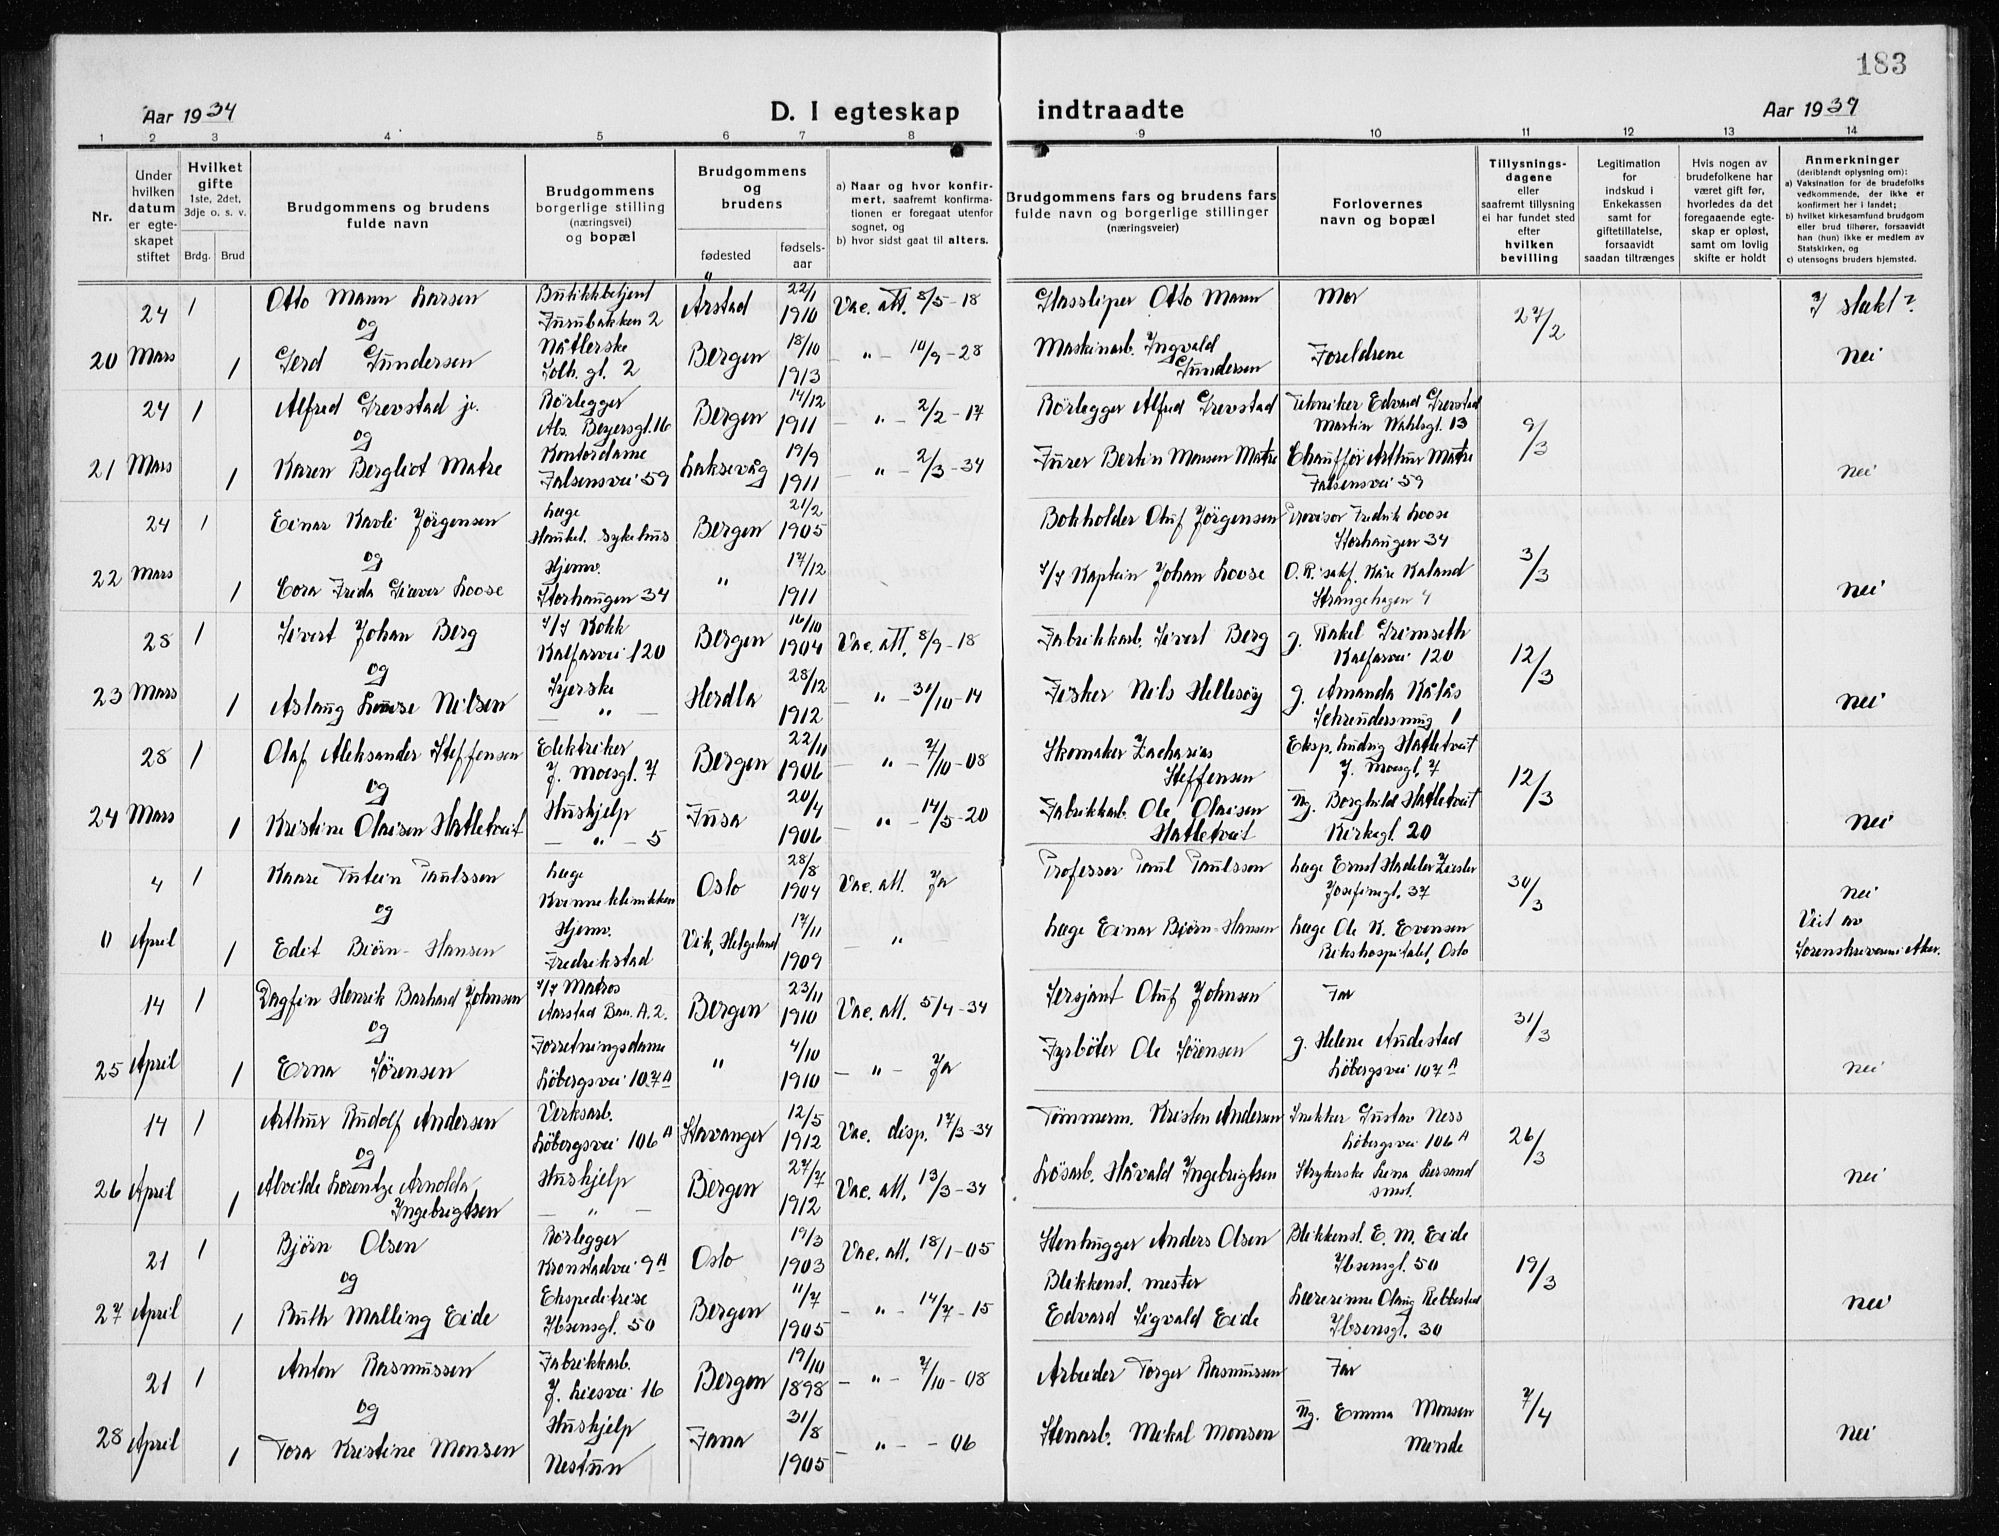 183
Aar 1934
D. I egteskap
indtraadte
Aar 1934
1 2 3 4 5 6 7 8 9 10 11 12 13 14
Nr.
Under hvilken datum er egteskapet stiftet
Hvilket gifte
1ste, 2det, 3dje o. s. v.
Brdg. Brud
Brudgommens og brudens
fulde navn
Brudgommens
borgerlige stilling
(næringsvei)
og bopæl
Brudgommens
og
brudens
fødested
fødsels-
aar
a) Naar og hvor konfir-
mert, saafremt konfirma-
tionen er foregaat utenfor
sognet, og
b) hvor sidst gaat til alters.
Brudgommens fars og brudens fars
fulde navn og borgerlige stillinger
(næringsveier)
Forlovernes
navn og bopæl
Tillysnings-
dagene
eller
saafremt tillysning
ei har fundet sted
efter
hvilken
bevilling
Legitimation
for
indskud i
Enkekassen
samt for
giftetillatelse,
forsaavidt
saadan tiltrænges
Hvis nogen av
brudefolkene har
været gift før,
hvorledes da det
foregaaende egte-
skap er opløst,
samt om lovlig
skifte er holdt
Anmerkninger
(deriblandt oplysning om):
a) Vaksination for de brudefolks
vedkommende, der ikke er
konfirmert her i landet;
b) hvilket kirkesamfund brudgom
eller brud tilhører, forsaavidt
han (hun) ikke er medlem av
Statskirken, og
c) utensogns bruders hjemsted.
20 24 Mars 1 Otto Mann Larsen Butikkbetjent Furubakken 2 Årstad 22/1 1910 Vac. att. 8/5-18 Glassliper Otto Mann Mor 27/2 I slekt?
og
1 Gerd Gundersen Nåtlerske Solh. gt. 2 Bergen 18/10 1913 - " - 10/9-28 Maskinarb. Ingvald Gundersen Foreldrene nei
21 24 Mars 1 Alfred Grevstad jr. Rørlegger Abs. Beyersgt. 16 Bergen 14/12 1911 - " - 2/2-17 Rørlegger Alfred Grevstad Tekniker Edvard Grevstad Martin Vahlsgt. 13 9/3
og
1 Karen Bergliot Matre Kontordame Falsensvei 59 Laksevåg 19/9 1911 - " - 2/3-34 Furer Bertin Monsen Matre Chauffør Arthur Matre Falsensvei 59 nei
22 24 Mars 1 Einar Kavli Jørgensen Læge Haukel. sykehus Bergen 21/2 1905 Bokholder Oluf Jørgensen Provisor Fredrik Loose Storhaugen 34 3/3
og
1 Cora Frida Siever Loose Hjemv. Storhaugen 34 " 17/12 1911 S/S Kaptein Johan Loose O.R. sakf. Kåre Kaland Strangehagen 4 nei
23 28 Mars 1 Sivert Johan Berg S/S Kokk Kalfarvei 120 Bergen 16/10 1904 Vac. att. 8/9-18 Fabrikkarb. Sivert Berg g. Rakel Grimseth Kalfarvei 120 12/3
og
1 Aslaug Louise Nilsen Syerske - " - Herdla 28/12 1912 - " - 31/10-14 Fisker Nils Hellesøy g. Amanda Kålås 1 nei
24 28 Mars 1 Olaf Aleksander Steffensen Elektriker J. Moesgt. 7 Bergen 22/11 1906 - " - 7/10-08 Skomaker Zacharias Steffensen Eksp. Ludvig Hatletveit J. Moesgt. 7 12/3
og
1 Kristine Olaisen Hatletveit Hushjelp - " - 5 Fusa 20/4 1906 - " - 14/5-20 Fabrikkarb. Ole Olaisen Hatletveit Ug. Borghild Hatletveit Kirkegt. 20 nei
0 4 April 1 Kaare Tutein Paulssen Læge Kvinneklinikken Oslo 28/8 1904 Vac. att. Ja Professor Paul Paulssen Læge Ernst Josefinegt. 37 30/3 nei
og
1 Edit Biørn-Hansen Hjemv. Fredrikstad Vik, Helgeland 17/11 1909 - " - Læge Einar Bjørn-Hansen Læge Ole K. Evensen Rikshospitalet, Oslo Veit av Sorenskriveren i Aker.
25 14 April 1 Dagfin Henrik Barhard Johnsen S/S Matros Aarstad Bau. A. 2. Bergen 23/11 1910 Vac. att. 5/4-34 Sersjant Oluf Johnsen Far 31/3
og
1 Erna Sørensen Forretningsdame Løbergsvei 107A " 4/10 1910 - " - Ja Fyrbøter Ole Sørensen g. Helene Audestad Løbergsvei 107A nei
26 14 April 1 Arthur Rudolf Andersen Verksarb. Løbergsvei 106A Stavanger 12/5 1912 Vac. disp. 17/3-34 Tømmerm. Kristen Andersen Snekker Gustav Ness Løbergsvei 106A 26/3
og
1 Alvilde Lorentze Arnolda Ingebrigtsen Hushjelp - " - Bergen 27/7 1912 Vac. att. 13/3-34 Løsarb. Håvald Ingebrigtsen Strykerske Lina smst. nei
27 21 April 1 Bjørn Olsen Rørlegger Kronstadvei 9A Oslo 19/3 1903 Vac. att. 18/1-05 Stenhugger Anders Olsen Blikkensl. E. M. Eide Ibsensgt. 50 19/3
og
1 Ruth Malling Eide Ekspeditrise Ibsensgt. 50 Bergen 11/7 1905 - " - 14/7-15 Blikkensl. mester Edvard Sigvald Eide Lærerinne Olaug Rebbestad Ibsensgt. 30 nei
28 21 April 1 Anton Rasmussen Fabrikkarb. J. Liesvei 16 Bergen 19/10 1898 - " - 7/10-08 Arbeider Torger Rasmussen Far 7/4
og
1 Tora Kristine Monsen Hushjelp Nestun Fana 31/8 1905 - " - -06 Stenarb. Mikal Monsen Ug. Emma Monsen Minde nei